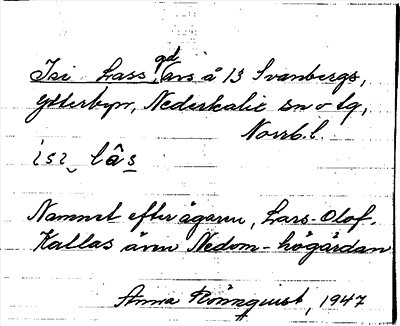 Isi Lass, gd, ars å 13 Svanbergs,
Ytterbyn, Nederkalix sn o tg,
Norrb. l.
isi lâs
Namnet efter ägaren, Lars-Olof.
Kallas även Nedom-högården
Anna Rönnquist, 1947